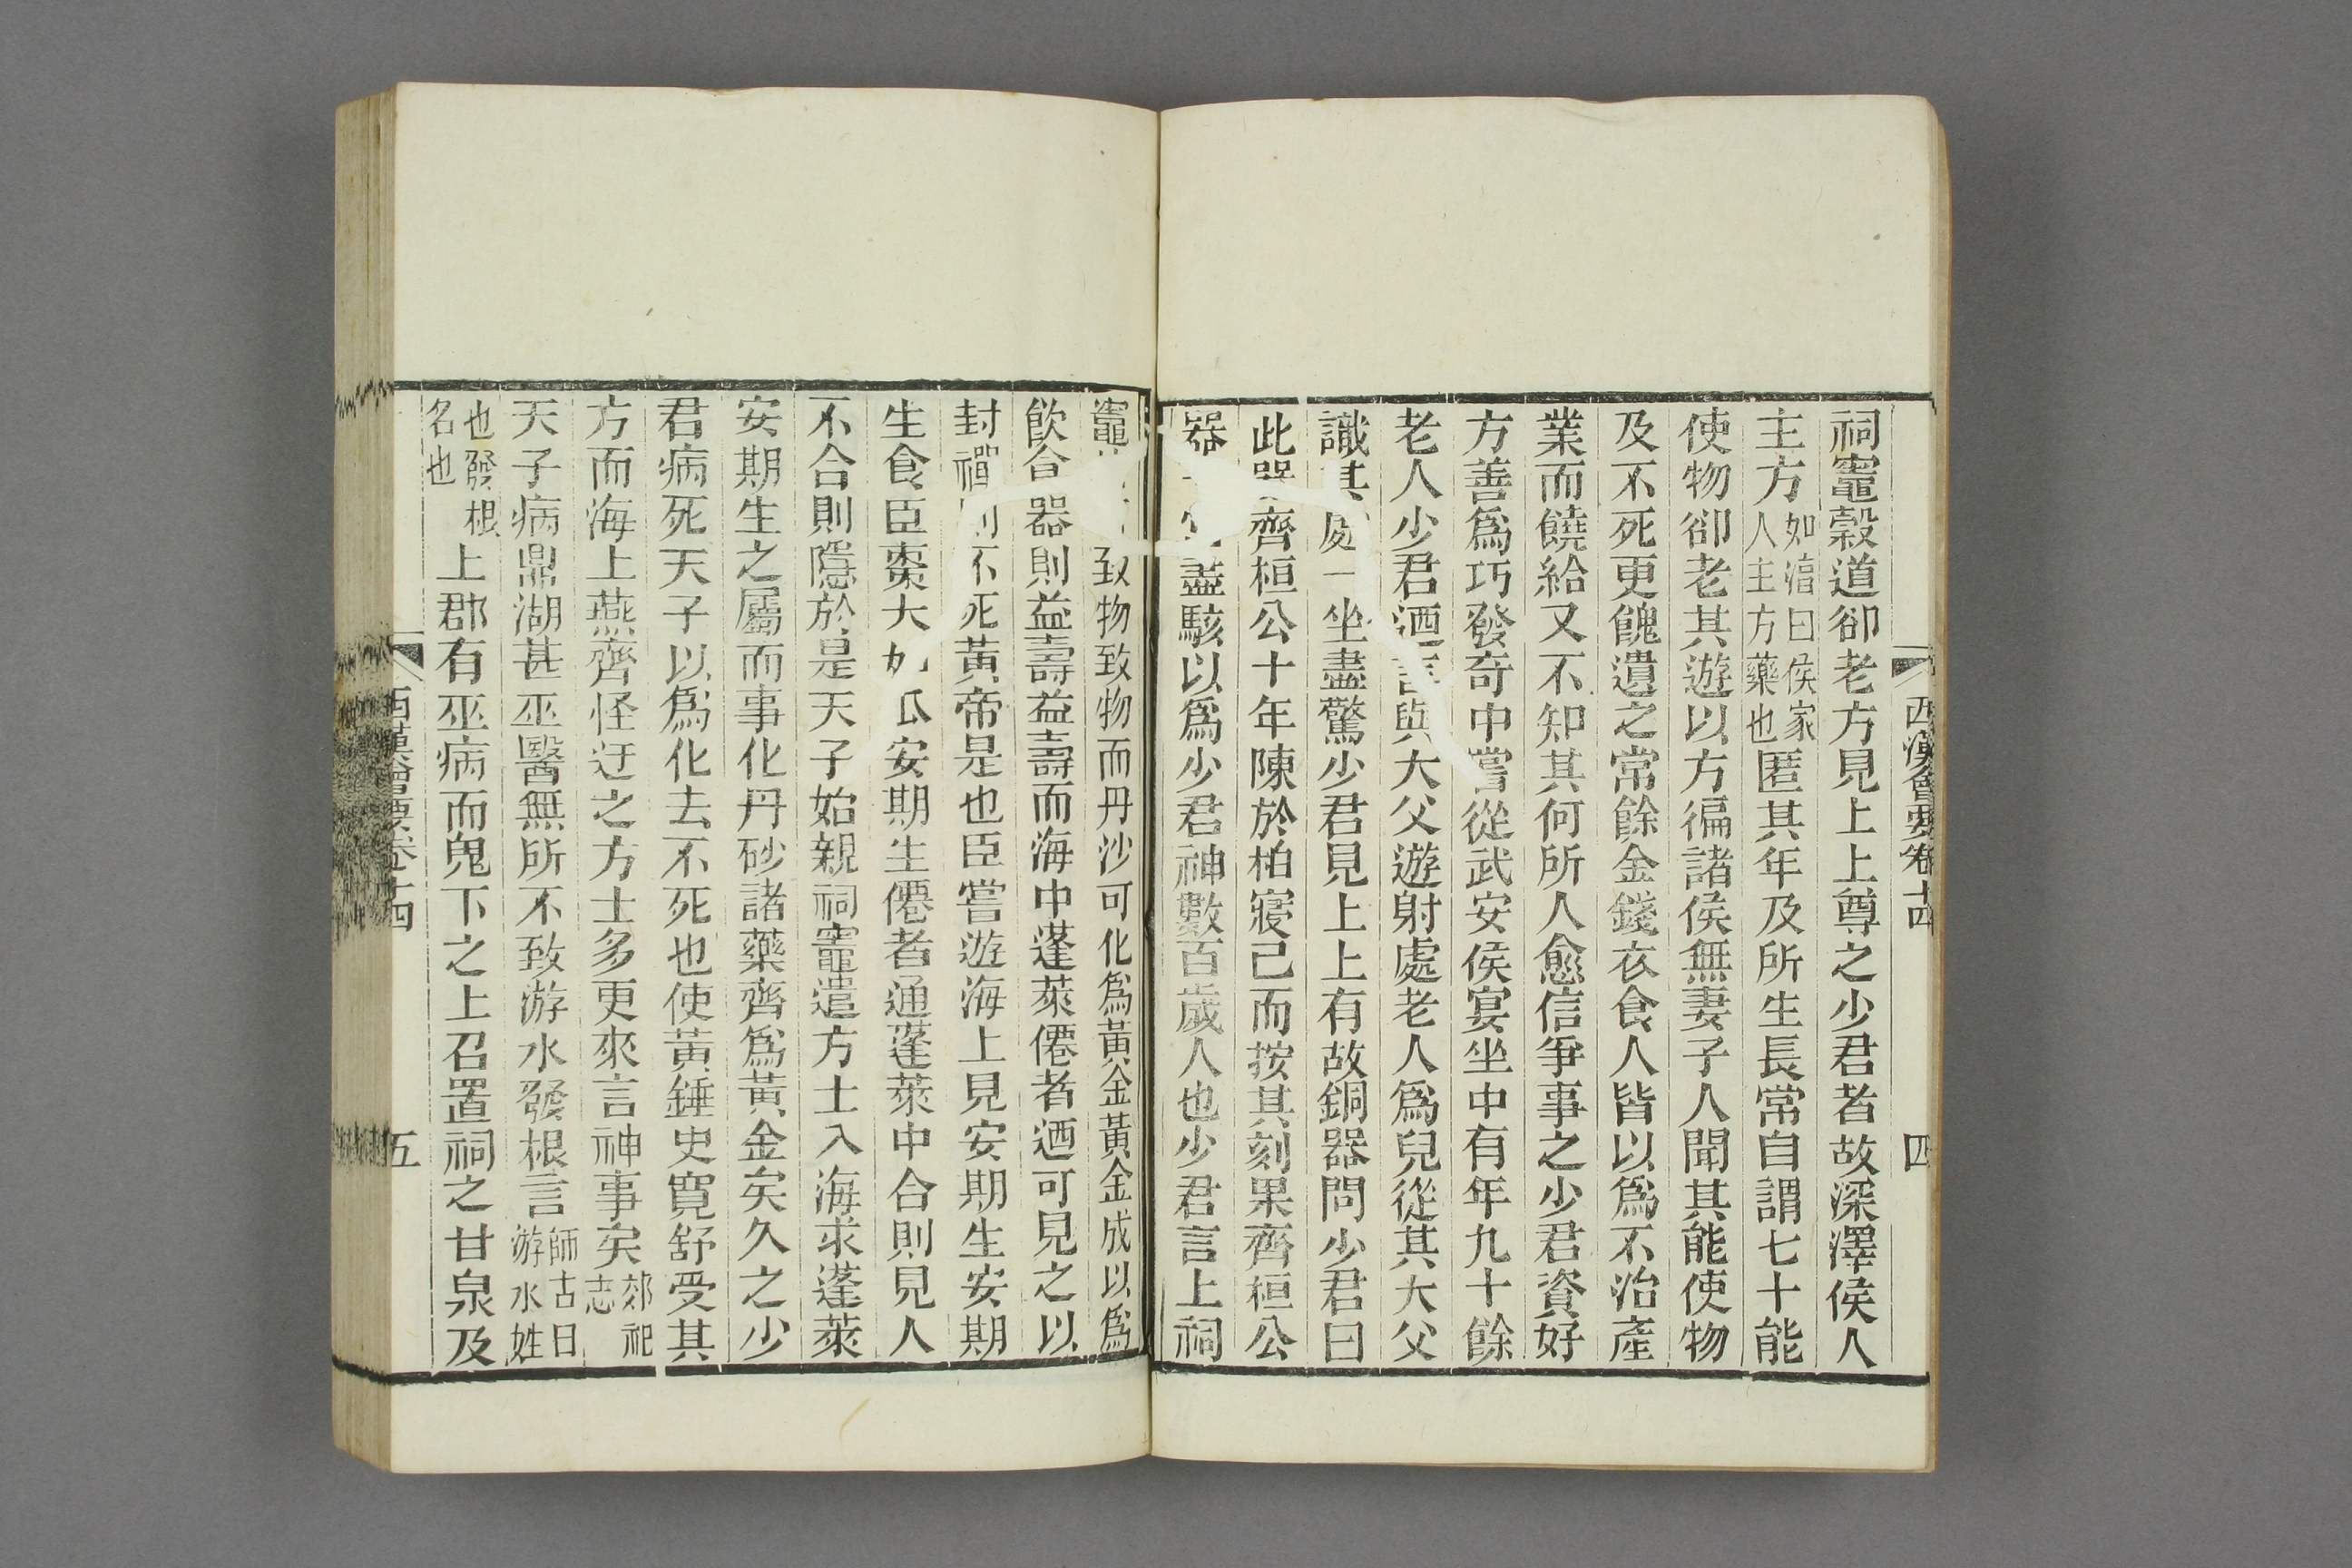 西漢會要卷十四
四
祠竈穀道卻老方見上上尊之少君者故深澤侯人
主方如淳曰侯家人主方藥也匿其年及所生長常自謂七十能
使物卻老其遊以方徧諸侯無妻子人聞其能使物
及不死更餽遺之常餘金錢衣食人皆以爲不治產
業而饒給又不知其何所人愈信爭事之少君資好
方善爲巧發奇中嘗從武安侯宴坐中有年九十餘
老人少君迺言與大父遊射處老人爲兒從其大父
識其處一坐盡驚少君見上上有故銅器問少君曰
此器齊桓公十年陳於柏寢己而按其刻果齊桓公
器盡駭以爲少君神數百歲人也少君言上祠
竈致物致物而丹沙可化爲黃金黃金成以爲
飮食器則益壽益壽而海中蓬萊僊者迺可見之以
封禪則不死黃帝是也臣嘗遊海上見安期生安期
生食臣棗大如瓜安期生僊者通蓬萊中合則見人
不合則隱於是天子始親祠竈遣方士入海求蓬萊
安期生之屬而事化丹砂諸藥齊爲黃金矣久之少
君病死天子以爲化去不死也使黃錘史寬舒受其
方而海上燕齊怪迂之方士多更來言神事矣郊祀志
天子病鼎湖甚巫醫無所不致游水發根言師古曰游水姓
也發根名也上郡有巫病而鬼下之上召置祠之甘泉及
西漢會要卷十四
五